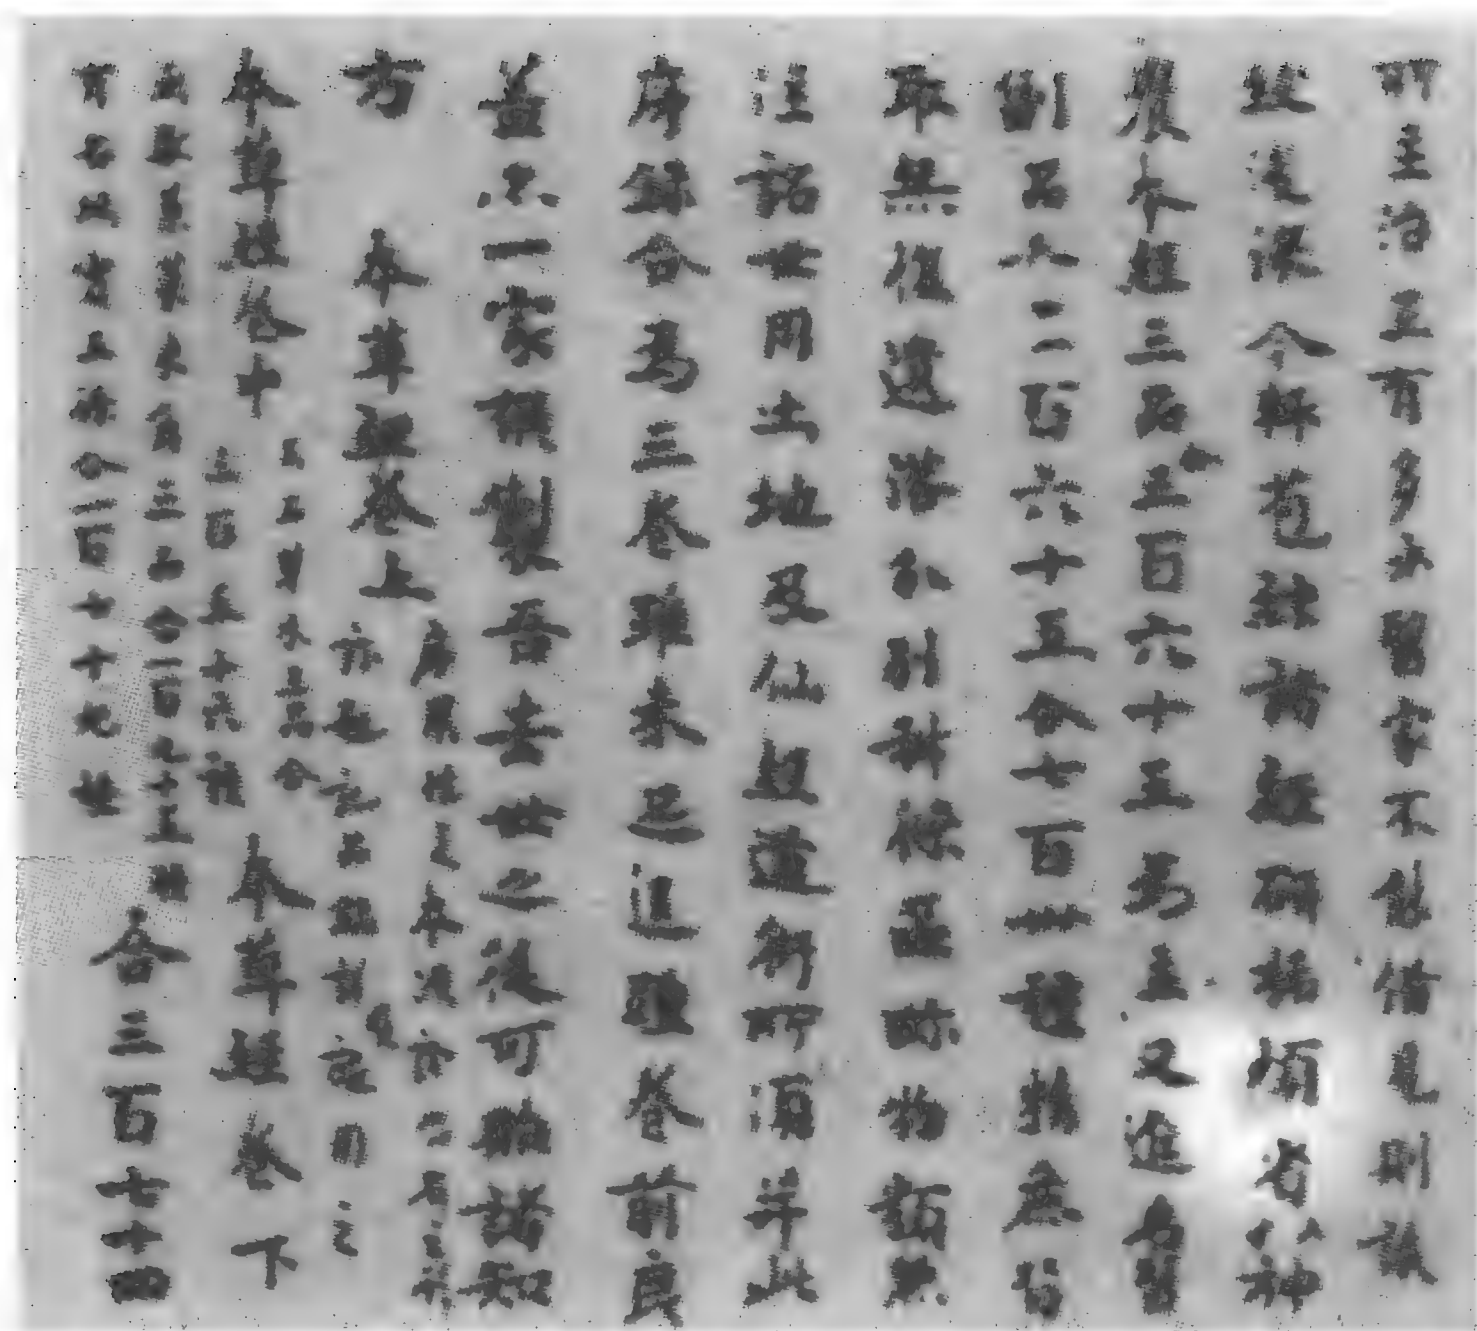 所主治互有多少醫家不能備見則識
致淺深今輒苞綜諸經研括煩省以神
農本經三品三百六十五為主又進名醫
副品亦三百六十五合七百卅種精麁皆
取無復遺落分別科條區畛物類兼
注銘世用土地及仙經道術所須并此
序錄合為三卷雖未足追踵前良
蓋亦一家撰製吾去世之後可貽諸知
方 本草經卷上 序藥性之本源
本草經卷中 玉石草木三品合三百五十六種 本草經卷下
虫獸菓菜米食三品合一百九十五種
有名无實三條合一百七十九種 合三百七十四